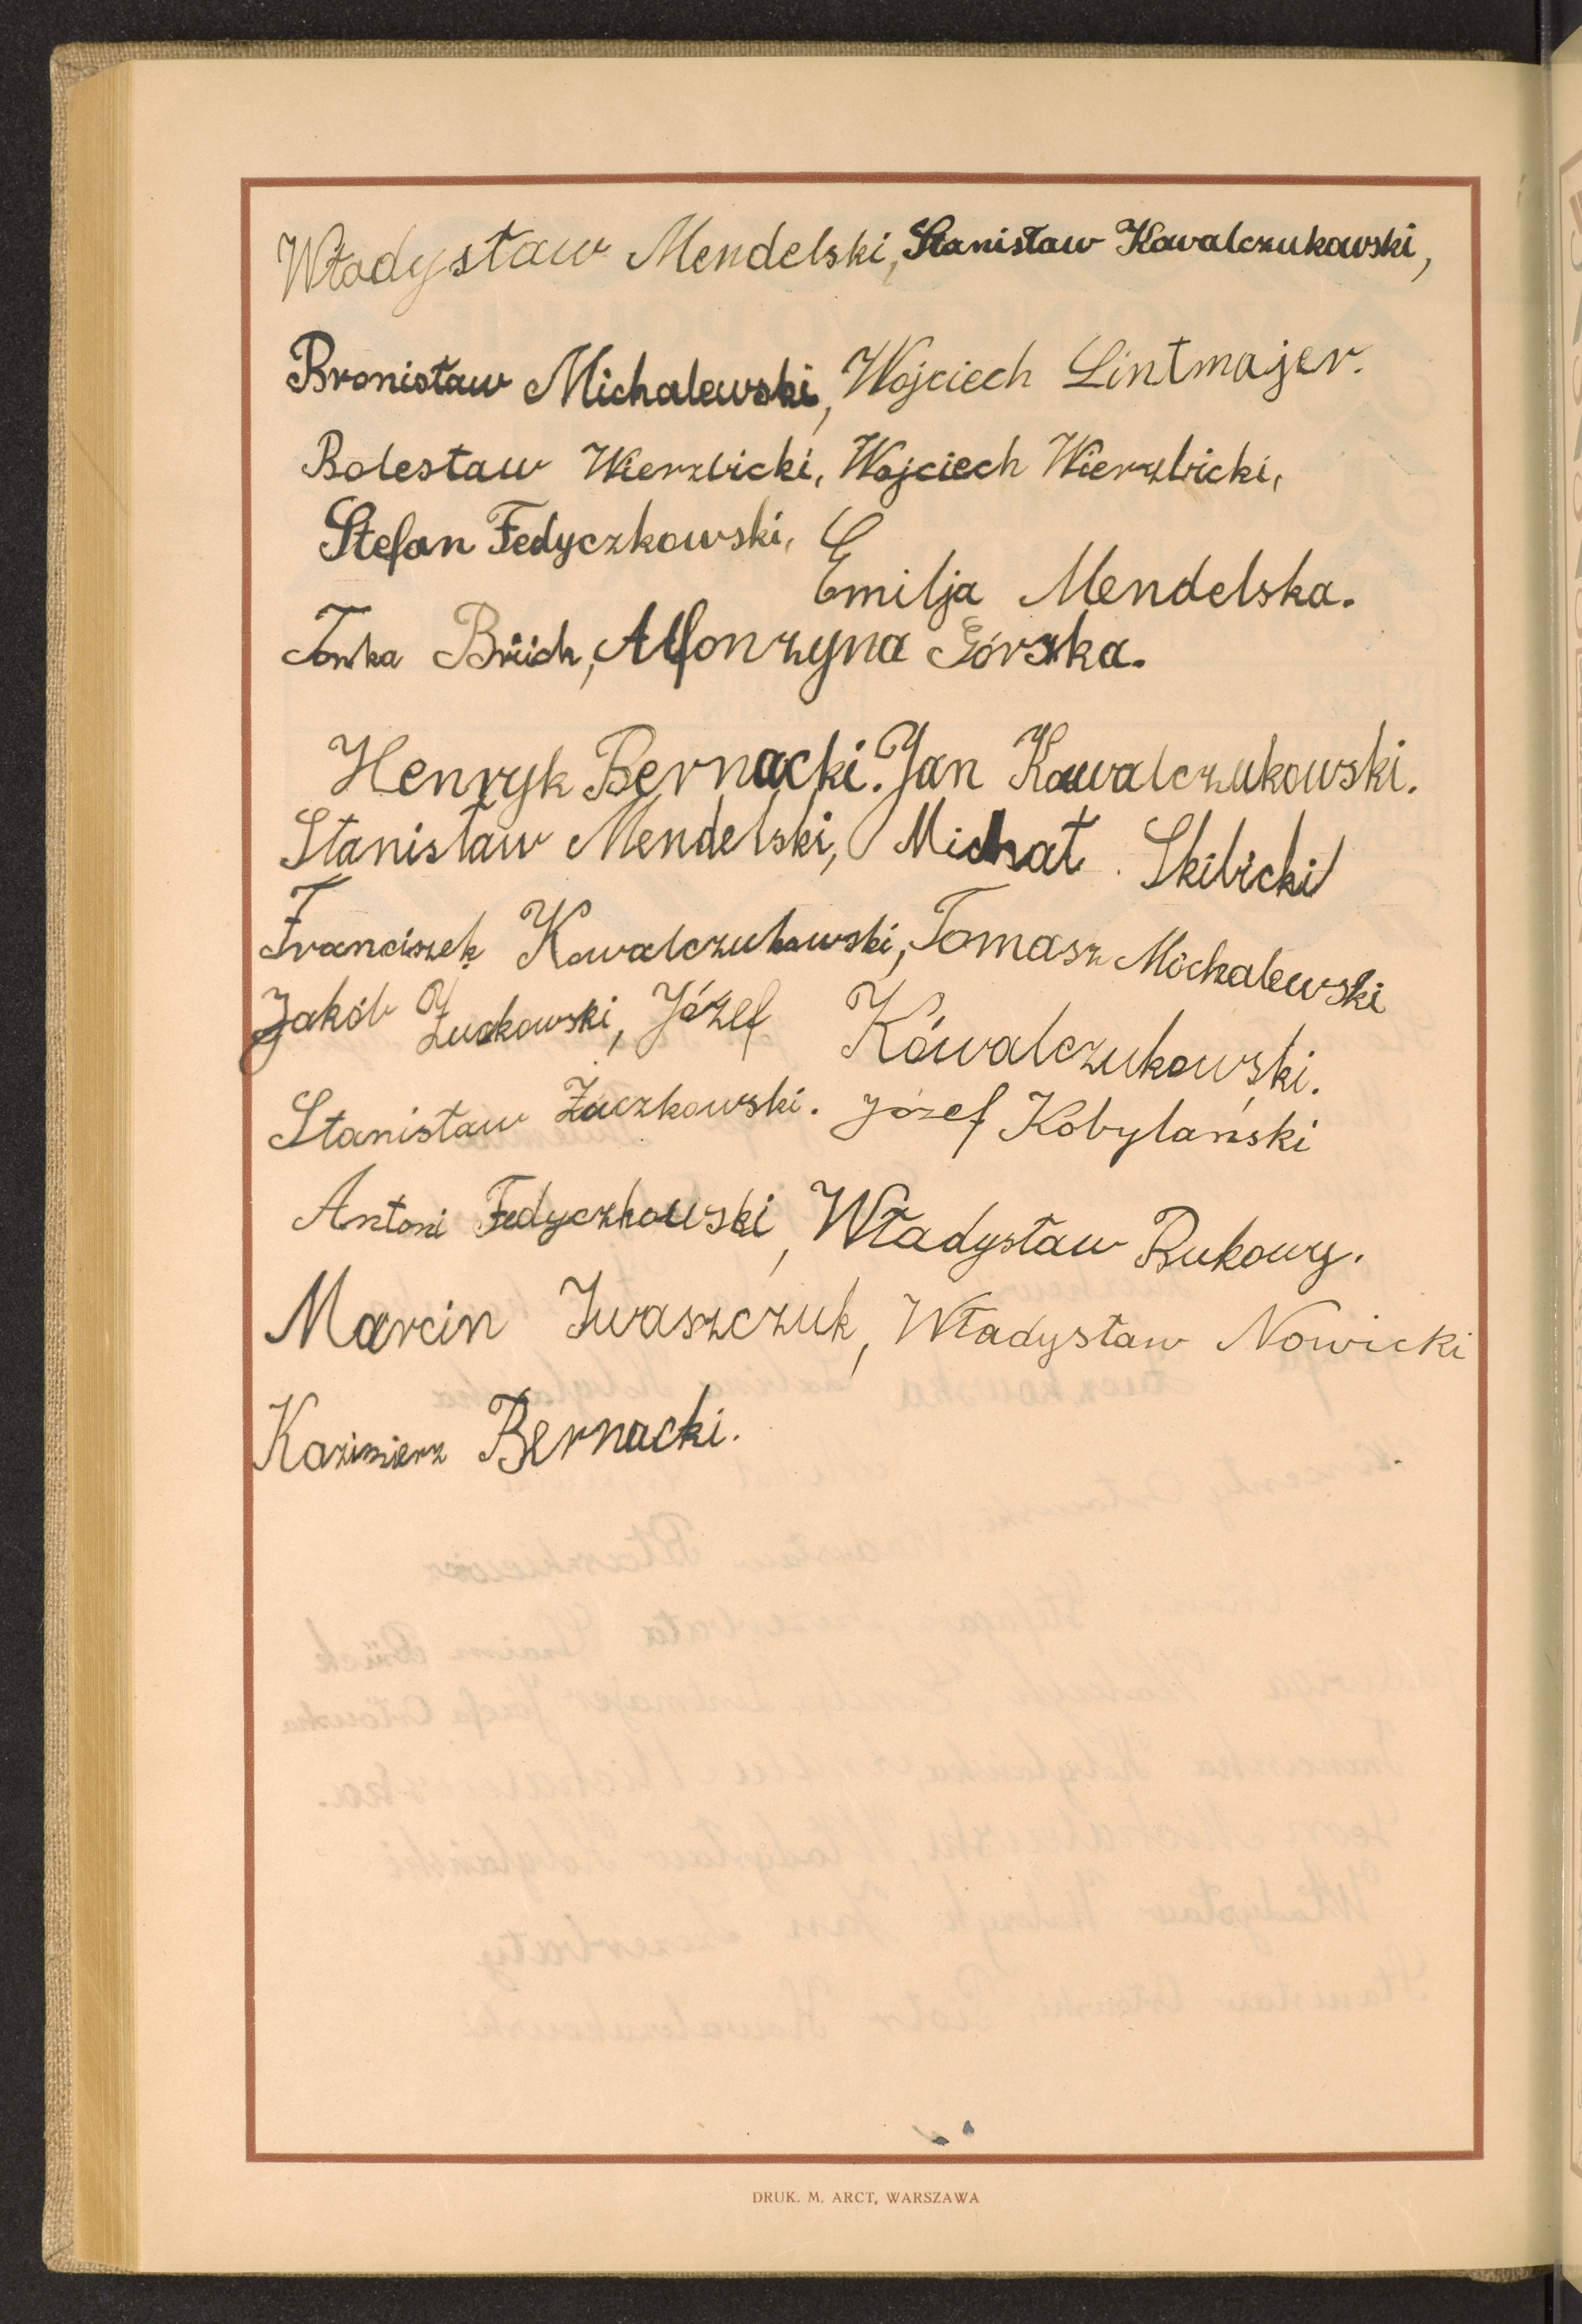 Władysław Mendelski, Stanisław Kowalczukowski,
Bronisław Michalewski, Wojciech Lintmajer.
Bolesław Wierzbicki, Wojciech Wierzbicki,
Stefan Fedyczkowski,
Emilja Mendelska.
Tonka Brück, Alfonzyna Górska.
Henryk Bernacki. Jan Kowalczukowski.
Stanisław Mendelski, Michał Skibicki
Franciszek Kowalczukowski, Tomasz Michalewski
Jakób Żuckowski, Józef Kowalczukowski.
Stanisław Żuczkowski. Józef Kobylański
Antoni Fedyczkowski, Władysław Bukowy.
Marcin Iwaszczuk, Władysław Nowicki
Kazimierz Bernacki.
DRUK. M. ARCT, WARSZAWA